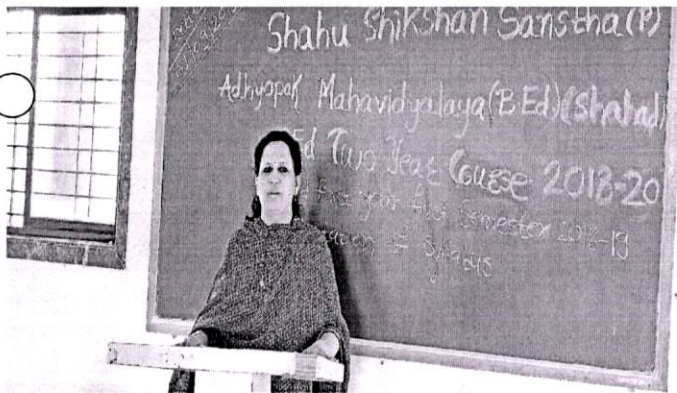 Shahu Shikshan Sanstha(P)
Adhyapak Mahavidyalaya(B.Ed)(Shahad)
Ed Two Year Course 2018-20
first year first Semester 2018-19
of Syllabus